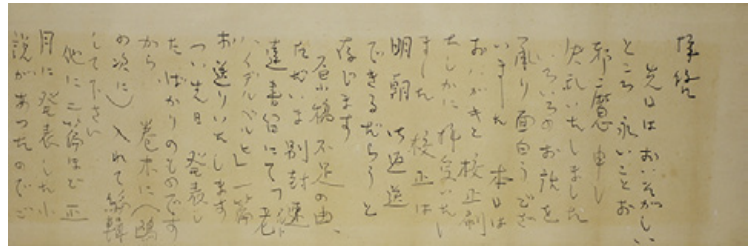 拝啓
先日はおいそがしい
ところ永いことお
邪魔申し
失礼いたしました
いろいろのお説を
承り面白うござ
いました 本日は
おハガキと校正刷
たしかに拝受いたし
ました 校正は
明朝御返送
できるだらうと
存じます
原稿不足の由、
たゞいま別封速
達書留にて「老
ハイデルベルヒ」一篇
お送りいたします
つい先日発表し
たばかりのものです
から、巻末に(鴎
の次に)入れて編輯
して下さい
他に二篇ほど正
月に発表した小
説があつたのでご